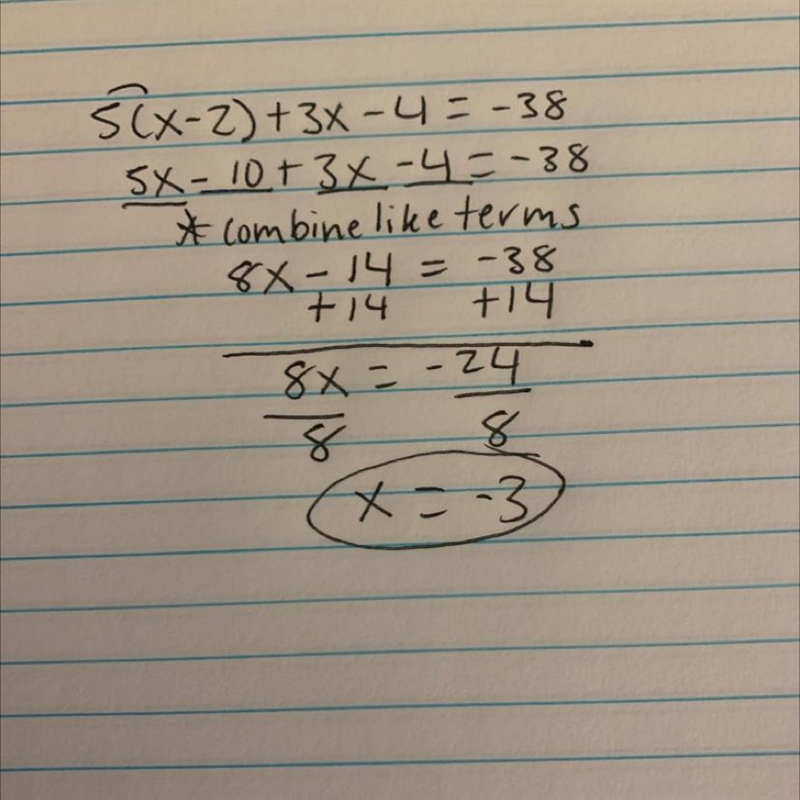 5(x-2)+3x-4=-38
5x-10+3x-4=-38
*combine like terms
8x-14=-38
+14 +14
8x=-24
8 8
x=-3